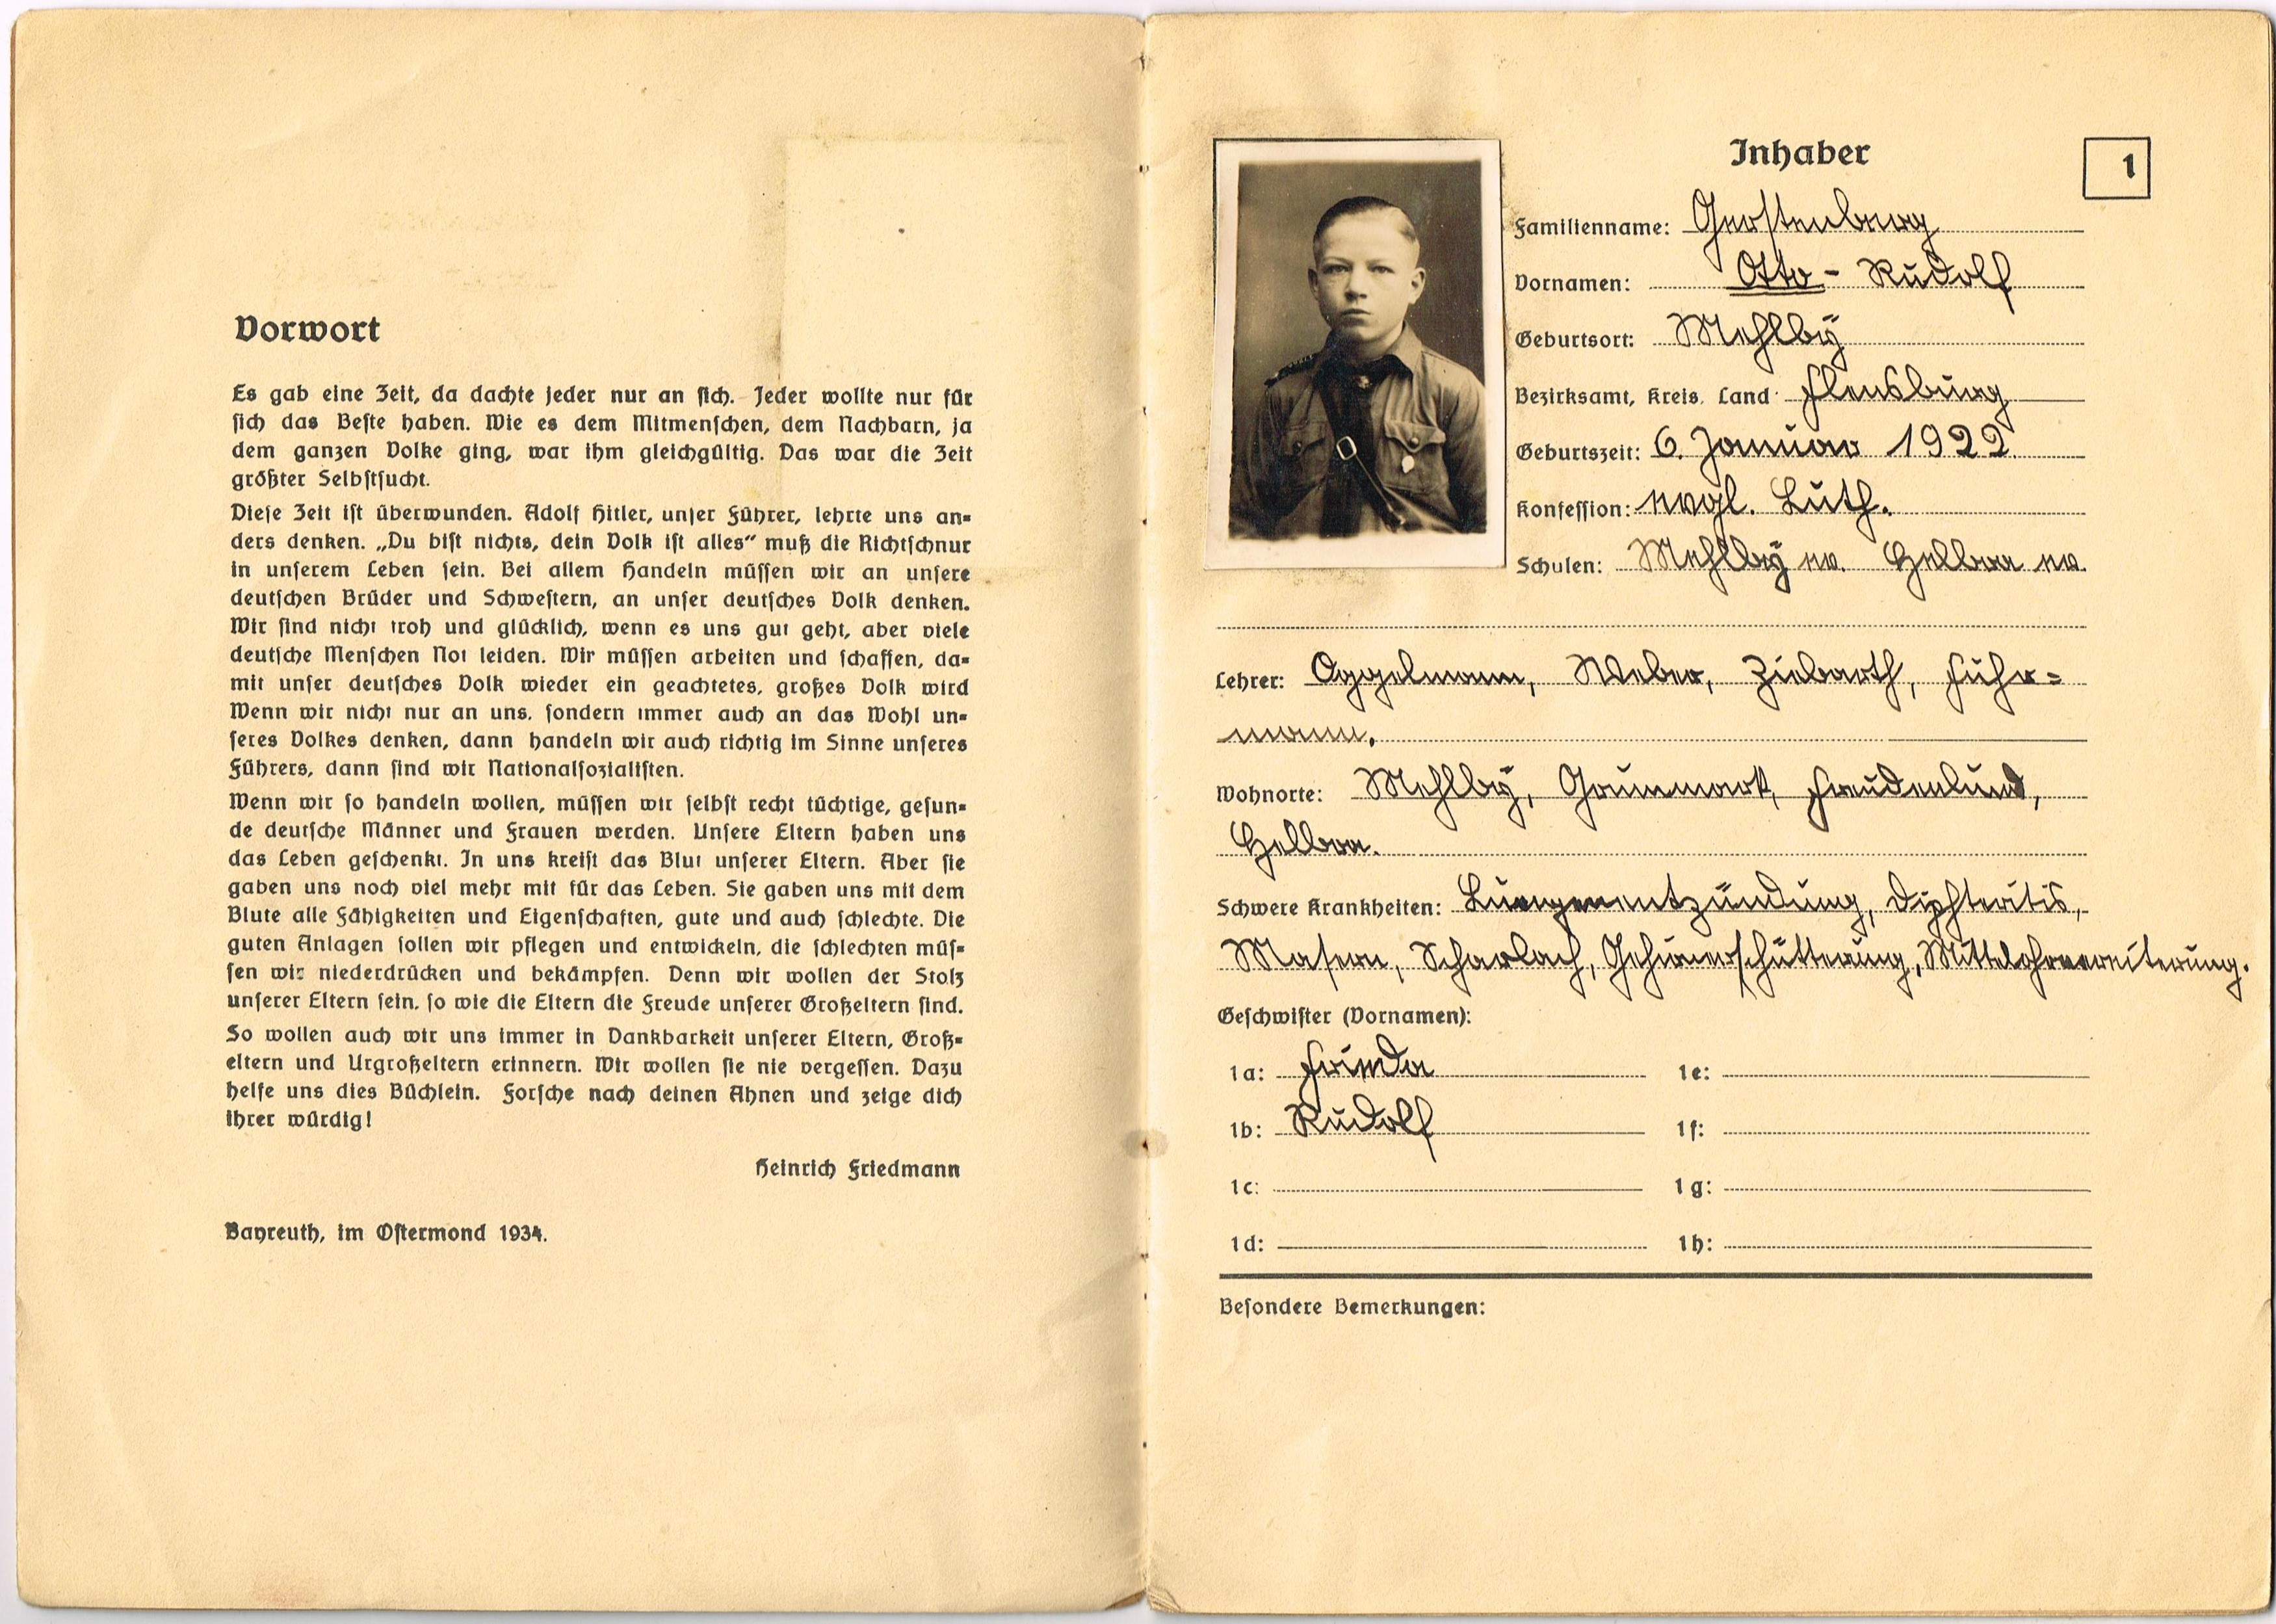 Vorwort
Es gab eine Zeit, da dachte jeder nur an sich. Jeder wollte nur für
sich das Beste haben. Wie es dem Mitmenschen, dem Nachbarn, ja
dem ganzen Volke ging, war ihm gleichgültig. Das war die Zeit
größter Selbstsucht.
Diese Zeit ist überwunden. Adolf Hitler, unser Führer, lehrte uns an-
ders denken. „Du bist nichts, dein Volk ist alles“ muß die Richtschnur
in unserem Leben sein. Bei allem Handeln müssen wir an unsere
deutschen Brüder und Schwestern, an unser deutsches Volk denken.
Wir sind nicht froh und glücklich, wenn es uns gut geht, aber viele
deutsche Menschen Not leiden. Wir müssen arbeiten und schaffen, da-
mit unser deutsches Volk wieder ein geachtetes, großes Volk wird
Wenn wir nicht nur an uns, sondern immer auch an das Wohl un-
seres Volkes denken, dann handeln wir auch richtig im Sinne unseres
Führers, dann sind wir Nationalsozialisten.
Wenn wir so handeln wollen, müssen wir selbst recht tüchtige, gesun-
de deutsche Männer und Frauen werden. Unsere Eltern haben uns
das Leben geschenkt. In uns kreist das Blut unserer Eltern. Aber sie
gaben uns noch viel mehr mit für das Leben. Sie gaben uns mit dem
Blute alle Fähigkeiten und Eigenschaften, gute und auch schlechte. Die
guten Anlagen sollen wir pflegen und entwickeln, die schlechten müs-
sen wir niederdrücken und bekämpfen. Denn wir wollen der Stolz
unserer Eltern sein, so wie die Eltern die Freude unserer Großeltern sind.
So wollen auch wir uns immer in Dankbarkeit unserer Eltern, Groß-
eltern und Urgroßeltern erinnern. Wir wollen sie nie vergessen. Dazu
helfe uns dies Büchlein. Forsche nach deinen Ahnen und zeige dich
ihrer würdig!
Heinrich Friedmann
Bayreuth, im Ostermond 1934.
Inhaber
1
Familienname: Gerstenberg
Vornamen: Otto - Rudolf
Geburtsort: Mehlby
Bezirksamt, Kreis, Land: Flensburg
Geburtszeit: 6. Januar 1922
Konfession: evgl. Luth.
Schulen: Mehlby ev. Helbra ev.
Lehrer: Oggelmann, Weber, Ziebarth, Fuhr-
mann.
Wohnorte: Mehlby, Grünmark, Freudenlund,
Helbra.
Schwere Krankheiten: Lungenentzündung, Diphteritis,
Masern, Scharlach, Gehirnerschütterung, Mittelohrvereiterung.
Geschwister (Vornamen):
1a: Frieda 1e:
1b: Rudolf 1f:
1c: 1g:
1d: 1h:
Besondere Bemerkungen: